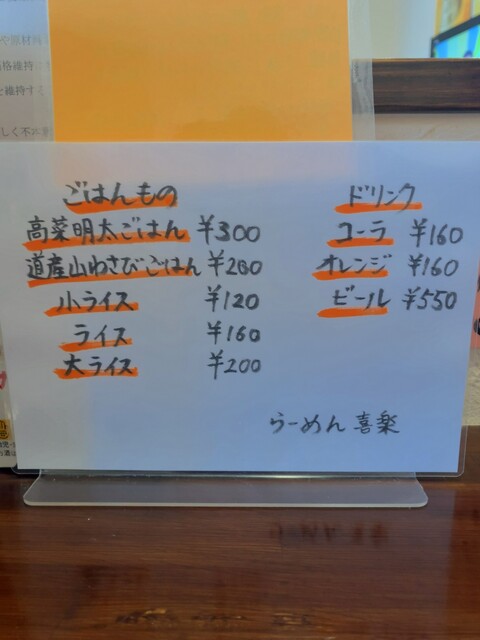 ごはんもの
高菜明太ごはん ¥300
道産山わさびごはん ¥200
小ライス ¥120
ライス ¥160
大ライス ¥200
ドリンク
コーラ ¥160
オレンジ ¥160
ビール ¥550
らーめん 喜楽